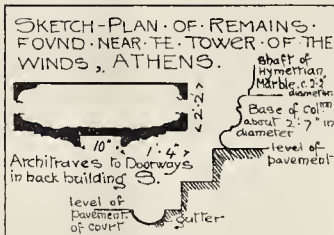 SKETCH-PLAN·OF·REMAINS·
FOVND·NEAR·TE·TOWER·OF·THE
WINDS, ATHENS.
Shaft of
Hymettian
Marble, c. 2'·2"
diameter
<·2'·2·>
Base of Colmn
about 2'·7" in
diameter
10"
1'·4"
Architraves to Doorways
in back building S.
level of
pavement
level of
pavement
of court
gutter